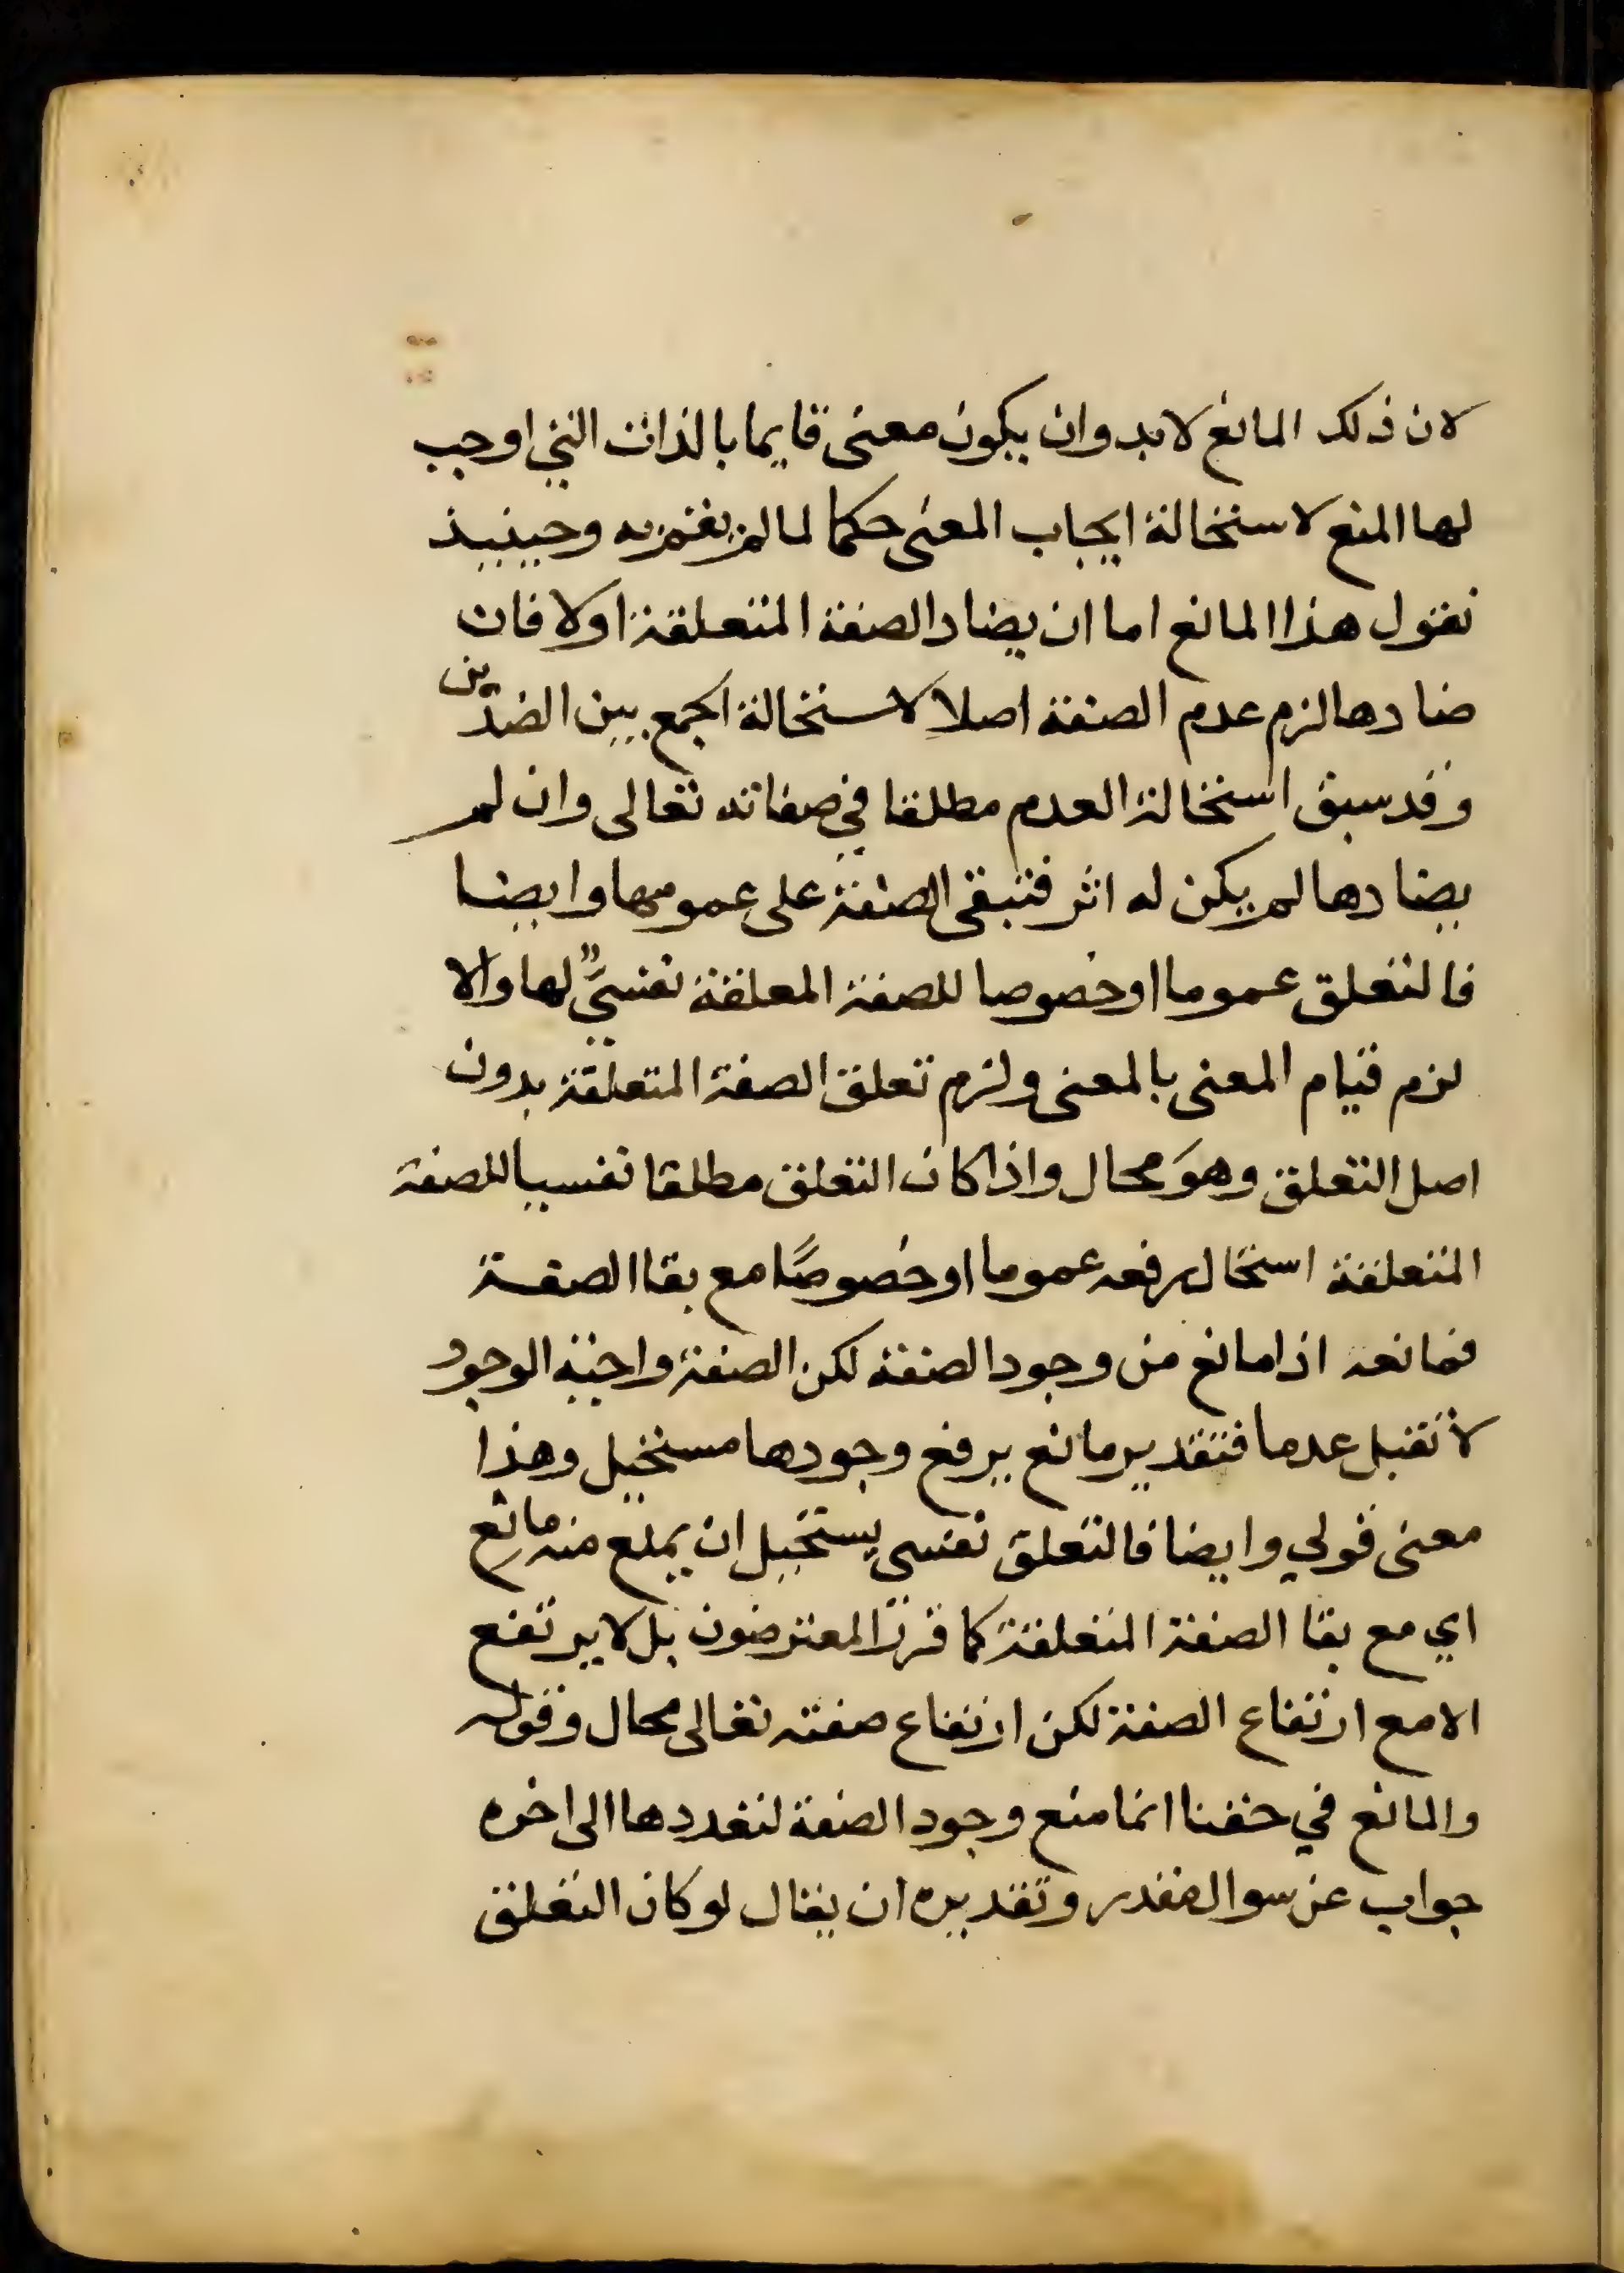 لان ذلك المانع لابد وان يكون معنى قايما بالذات التي اوجب
لها المنع لاستحالة ايجاب المعنى حكما لما لم يقم به وحينيذ
نقول هذا المانع اما ان يضاد الصفة المتعلقة اولا فان
ضادها لزم عدم الصفة اصلا لاستحالة الجمع بين الضدّين
وقد سبق استحالة العدم مطلقا في صفاته تعالى وان لم
يضادها لم يكن له اثر فتبقى الصفة على عمومها وايضا
فالتعلق عموما اوخصوصا للصفة المعلقة نفسيٌّ لها والا
لزم قيام المعنى بالمعنى ولزم تعلق الصفة المتعلقة بدون
اصل التعلق وهوَ محال واذا كان التعلق مطلقا نفسيا للصفة
المتعلقة استحال رفعه عموما اوخصوصًا مع بقا الصفة
فمانعه اذا مانع من وجود الصفة لكن الصفة واجبة الوجود
لا تقبل عدما فتقدير مانع يرفع وجودها مستحيل وهذا
معنى قولي وايضا فالتعلق نفسي يستحيل ان يمنع منه مانع
اي مع بقا الصفة المتعلقة كما قرر المعترضون بل لا يرتفع
الا مع ارتفاع الصفة لكن ارتفاع صفته تعالى محال وقوله
والمانع في حقنا انما منع وجود الصفة لتعددها الى اخره
جواب عن سوال مقدر وتقديره ان يقال لو كان التعلق